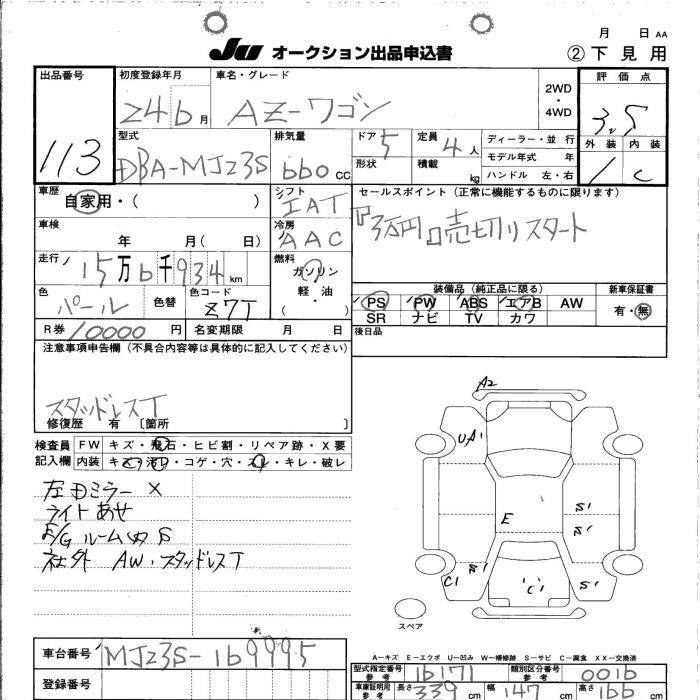 月 日 AA
JU オークション出品申込書 ② 下見用
出品番号 初度登録年月 車名・グレード 2WD・4WD 評価点
113 24 6 月 AZ-ワゴン 3.5
型式 排気量 ドア 5 定員 4 人 ディーラー・並行 外装 内装
DBA-MJ23S 660 CC 形状 積載 kg モデル年式 年 C
ハンドル 左・右
車歴 シフト セールスポイント(正常に機能するものに限ります)
自家用・( ) IAT 『3万円』売切りスタート
車検 冷房
年 月( 日) AAC
走行 燃料
15万6千934km ガソリン
軽・油
( )
色 色替 色コード
パール Z7T
装備品(純正品に限る) 新車保証書
PS PW ABS エアB AW 有・無
SR ナビ TV カワ
R券 10000 円 名変期限 月 日 後日品
注意事項申告欄(不具合内容等は具体的に記入してください)
スタッドレスT
修復歴 有 〔箇所 〕
検査員 FW キズ・飛石・ヒビ割・リペア跡・X要
記入欄 内装 キズ・汚レ・コゲ・穴・スレ・キレ・破レ
左ドミラー X
ライトあせ
ルーム内 S
社外 AW・スタッドレスT
A2
UA'
S'
E
S'
C'
'C'
S'
スペア
車台番号 MJ23S-169995
登録番号
A-キズ E-エクボ U-凹み W-補修跡 S-サビ C-腐食 XX-交換済
型式指定番号 参考 16171 類別区分番号 参考 0016
車庫証明用 参考 長さ 339 cm 幅 147 cm 高さ cm